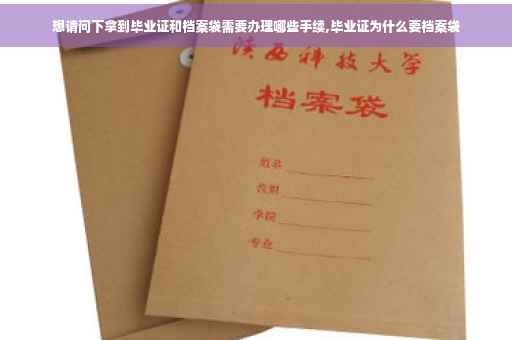 想请问下拿到毕业证和档案袋需要办理哪些手续,毕业证为什么要档案袋
陕西科技大学
档案袋
姓名
学院
专业